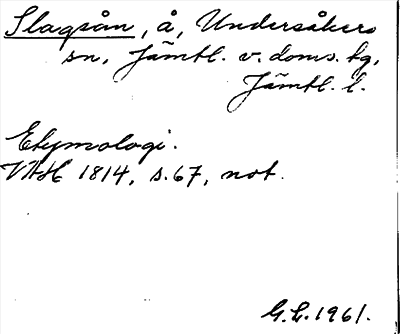 Slagsån, å, Undersåkers
sn, Jämtl. v. doms. tg,
Jämtl. l.
Etymologi.
VAH 1814, s. 67, not.
G.L. 1961.